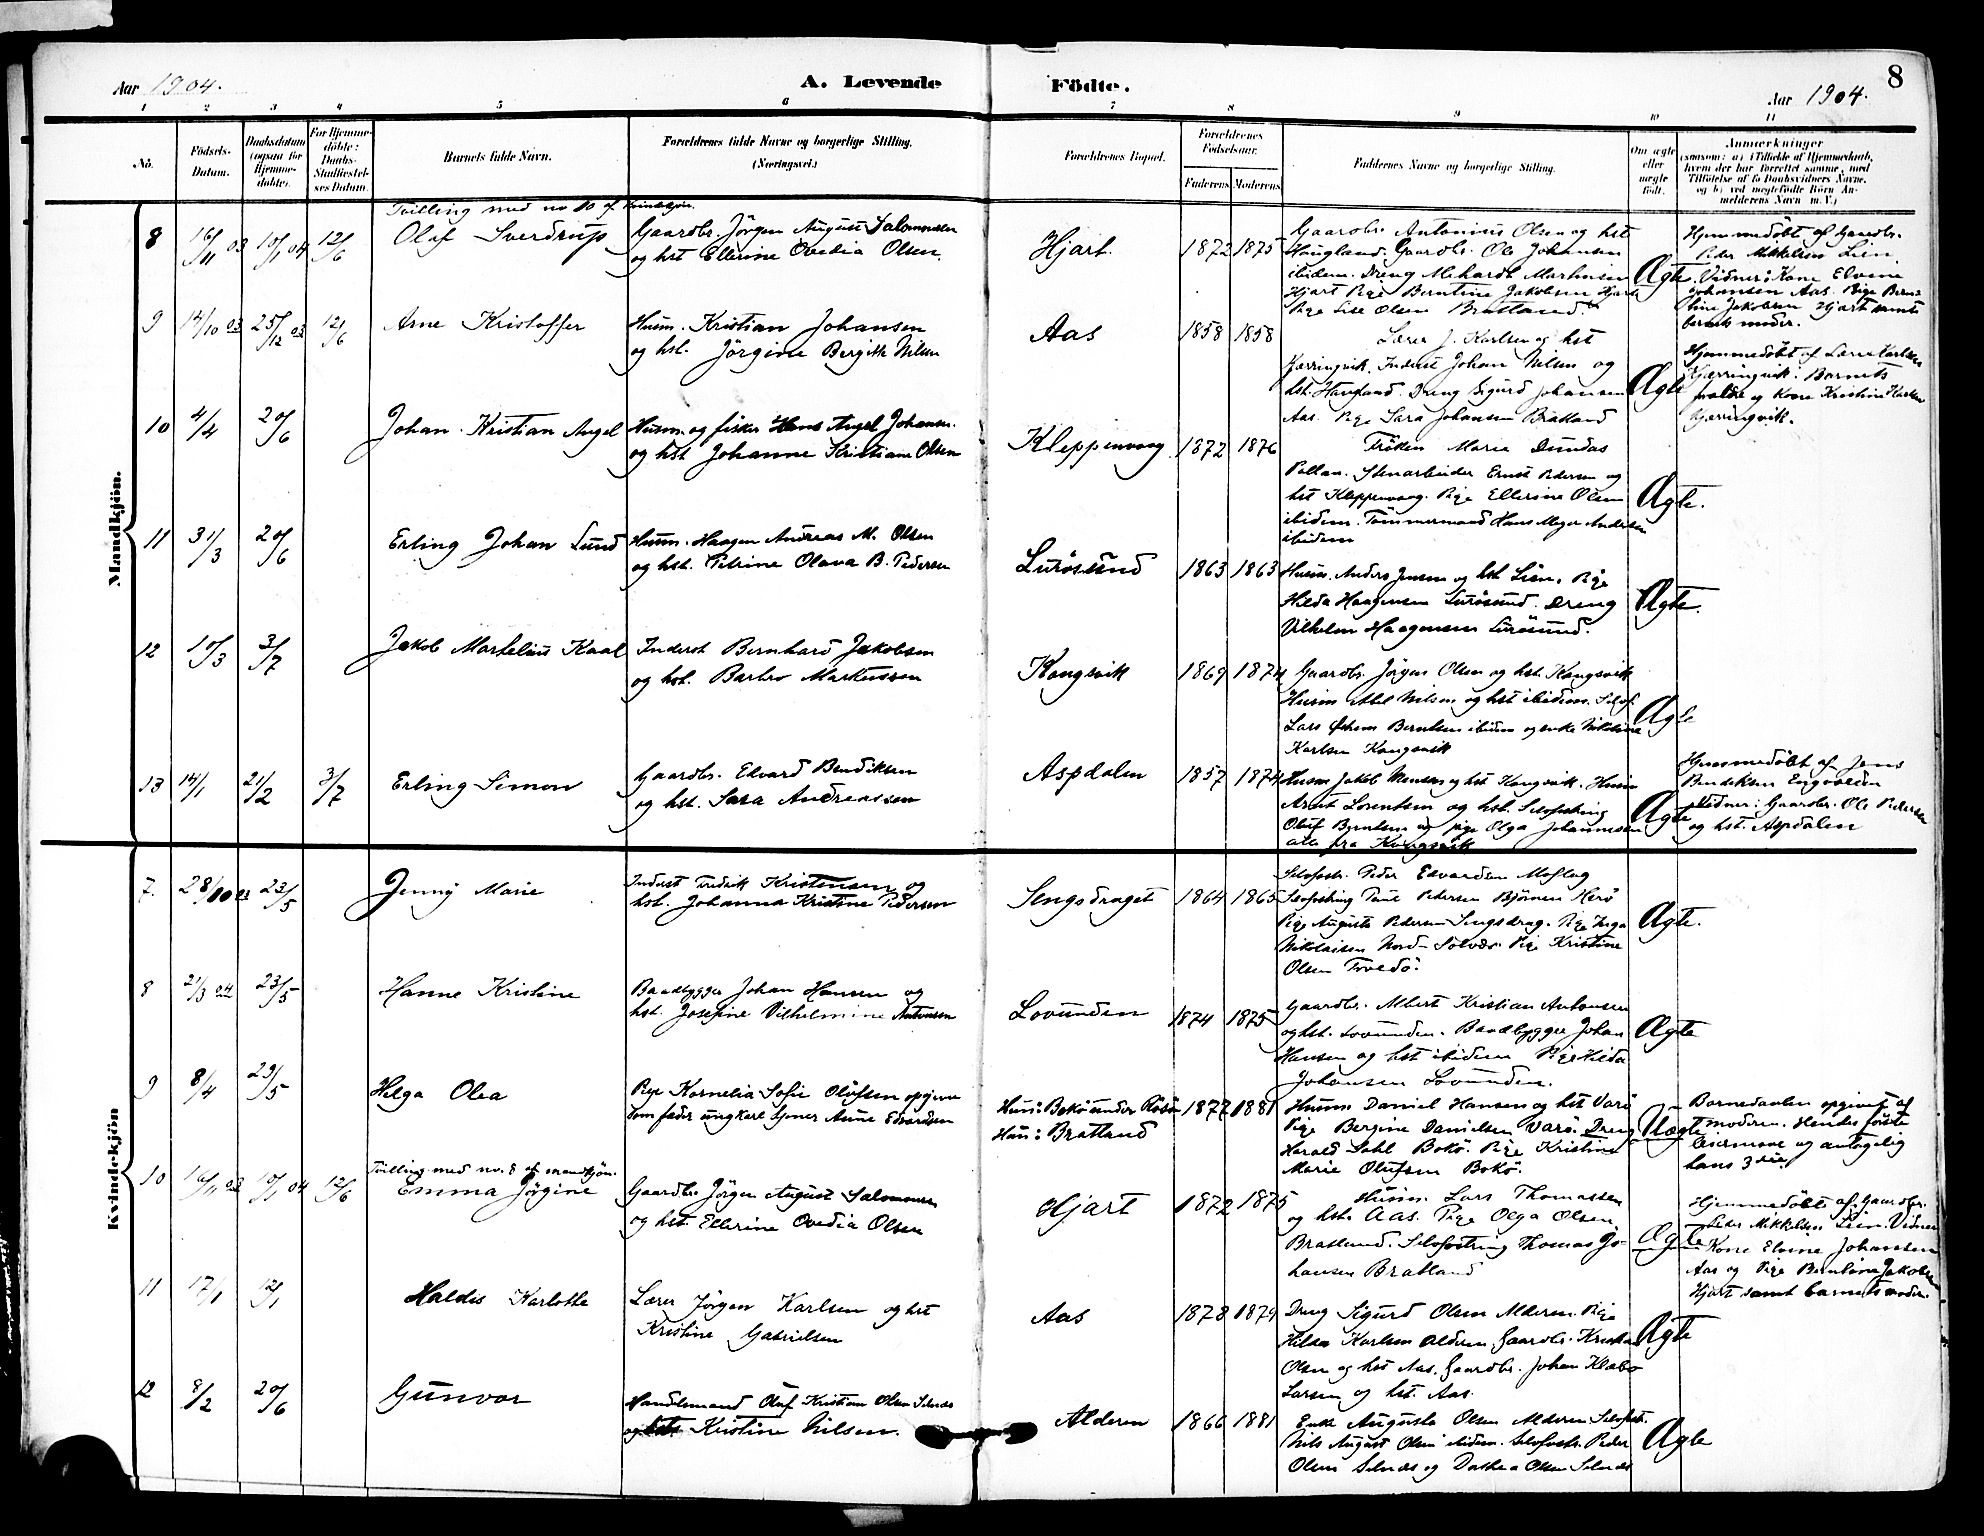 Aar 1904.
A. Levende
Födte.
8
Aar 1904.
1 2 3 4 5 6 7 8 9 10 11
No.
Födsels-Datum.
Daabsdatum (ogsaa for Hjemmedöbte).
For Hjemmedöbte: Daabs-Stadfæstelses Datum.
Barnets fulde Navn.
Forældrenes fulde Navne og borgerlige Stilling. (Næringsvei.)
Forældrenes Bopæl.
Forældrenes Födselsaar.
Faderens Moderens
Faddernes Navne og borgerlige Stilling.
Om ægte eller uægte født.
Anmærkninger
(saasom: a) i Tilfælde af Hjemmedaab, hvem der har forrettet samme, med Tilföielse af to Daabsvidners Navne, og b) ved uægtefödte Börn Anmelderens Navn m. V.)
Mandkjön.
Tvilling med no 10 af kvindekjøn.
8 16/11 03 10/1 04 12/6 Olaf Sverdrup
Gaardbr. Jörgen August Salomonsen
og hst Ellerine Ovedia Olsen.
Hjart. 1872 1875
Gaardbr. Antonius Olsen og hst
Haugland. Gaardbr. Ole Johansen
ibidem. Dreng Mekardt Martinsen
Hjart Pige Berntine Jakobsen Hjart
Pige Lise Olsen Bratland.
Ægte
Hjemmedöbt af Gaardbr.
Peder Mikkelsen Lien.
Vidner: Kone Elvine
Johansen Aas. Pige Bern-
tine Jakobsen Hjart samt
barnets moder.
9 14/10 03 25/12 03 12/6 Arne Kristoffer
Husm. Kristian Johansen
og hst. Jörgine Bergitte Nilsen
Aas 1858 1858
Lærer J. Karlsen og hst
Kjærringvik. Inderst Johan Nilsen og
hst. Dreng Sigurd Johansen
Aas. Pige Sara Johansen Bratland
Ægte
Hjemmedöbt af Lærer Karlsen
Kjærringvik. Barnets
og Kone Kristine Karlsen
Kjærringvik.
10 4/4 20/6 Johan Kristian Angel
Husm. og fisker Hans Angel Johansen.
og hst Johanne Kristiane Olsen
Kleppenvaag 1872 1876
Fröken Marie Dundas
Pollan. Stenarbeider Ernst Pedersen og
hst Kleppenvaag. Pige Ellerine Olsen
ibidem. Tömmermand Hans Meyer Andersen
ibidem
Ægte.
11 31/3 20/6 Erling Johan Lund
Husm. Haagen Andreas M. Olsen
og hst. Petrine Olava B. Pedersen
Lurösund 1863 1863
Husm. Anders Jensen og hst Lien. Pige
Hilda Haagensen Lurösund. Dreng
Vilhelm Haagensen Lurösund.
Ægte.
12 10/3 3/7 Jakob Martelius Kaal
Inderst Bernhard Jakobsen
og hst. Barbro Markussen
Kongsvik 1869 1874
Gaardbr. Jörgen Olsen og hst. Kongsvik
Husm Abel Nilsen og hst ibidem. Selvf.
Lars Berntsen ibidem og enke Nikoline
Karlsen Kongsvik
Ægte
13 14/1 21/2 3/7 Erling Simon
Gaardbr. Edvard Bendiksen
og hst. Sara Andreassen
Aspdalen 1857 1874
Husm Jakob Monsen og hst Kongsvik. Husm
Arnt Lorentsen og hst. Selvfostring
Oluf Berntsen og pige Olga Johannesen
alle fra Kongsvik
Ægte
Hjemmedöbt af Jens
Bendiksen Engvolden
Vidner: Gaardbr. Ole Pedersen
og hst. Aspdalen
Kvindekjön
7. 28/10 03 23/5 Jenny Marie
Inderst Fredrik Kristensen og
hst. Johanna Kristine Pedersen
Sengsdraget 1864 1865
Selvfostr. Peder Edvardsen Moflag
Selvfostring Pedersen Björnen Herö
Pige Augusta Pedersen Sengsdrag. Pige Inga
Nikolaisen Nord-Solvær. Pige Kristine
Olsen
Ægte.
8 21/3 04 23/5 Hanne Kristine
Baadbygger Johan Hansen og
hst. Josefine Vilhelmine Antonsen
Lovunden 1874 1875
Gaardbr. Albert Kristian Antonsen
og hst. Lovunden. Baadbygger Johan
Hansen og hst ibidem Pige Hilda
Johansen Lovunden.
Ægte
9 8/4 29/5 Helga Olea
Pige Kornelia Sofie Olufsen opgiver
som fader ungkarl Arne Edvardsen
Hun: Bokö under
Han: Bratland
1877 1881
Husm. Daniel Hansen og hst Varö
Pige Bergine Danielsen Varö. Dreng
Harald Dahl Bokö. Pige Kristine
Marie Olufsen Bokö.
Uægte
Barnedaaben opgivet af
moderen. Hendes förste
leiermaal og antagelig
hans 3die.
Tvilling med no. 8 af mandkjøn.
10 16/11 03 10/1 04 12/6 Emma Jörgine
Gaardbr Jörgen August Salomonsen
og hst. Ellerine Ovedia Olsen
Hjart 1872 1875
Husm. Lars Thomassen
og hst. Aas. Pige Olga Olsen
Bratland. Selvfostring Thomas Jo-
hansen Bratland
Ægte
Hjemmedöbt af Gaardbr.
Peder Mikkelsen Lien. Vidner
Kone Elvine Johansen
Aas og Pige Berntine Jakobsen
Hjart samt barnets moder.
11 17/1 12/1 Haldis Karlotte
Lærer Jörgen Karlsen og hst
Kristine Gabrielsen
Aas 1878 1879
Dreng Sigurd Olsen Alderen. Pige
Hilda Karlsen Alderen. Gaardbr. Kristian
Olsen og hst Aas. Gaardbr. Johan Klabo
Larsen og hst. Aas.
Ægte
12 8/2 20/6 Gunvor
Handelsmand Oluf Kristian Olsen Selnes
og Kristine Nilsen.
Alderen 1866 1881
Enke Augusta Olsen Alderen Selvfost.
Nils August Olsen ibidem. Selvfostr. Peder
Olsen Selnæs og Dorthea Olsen Selnæs
Ægte